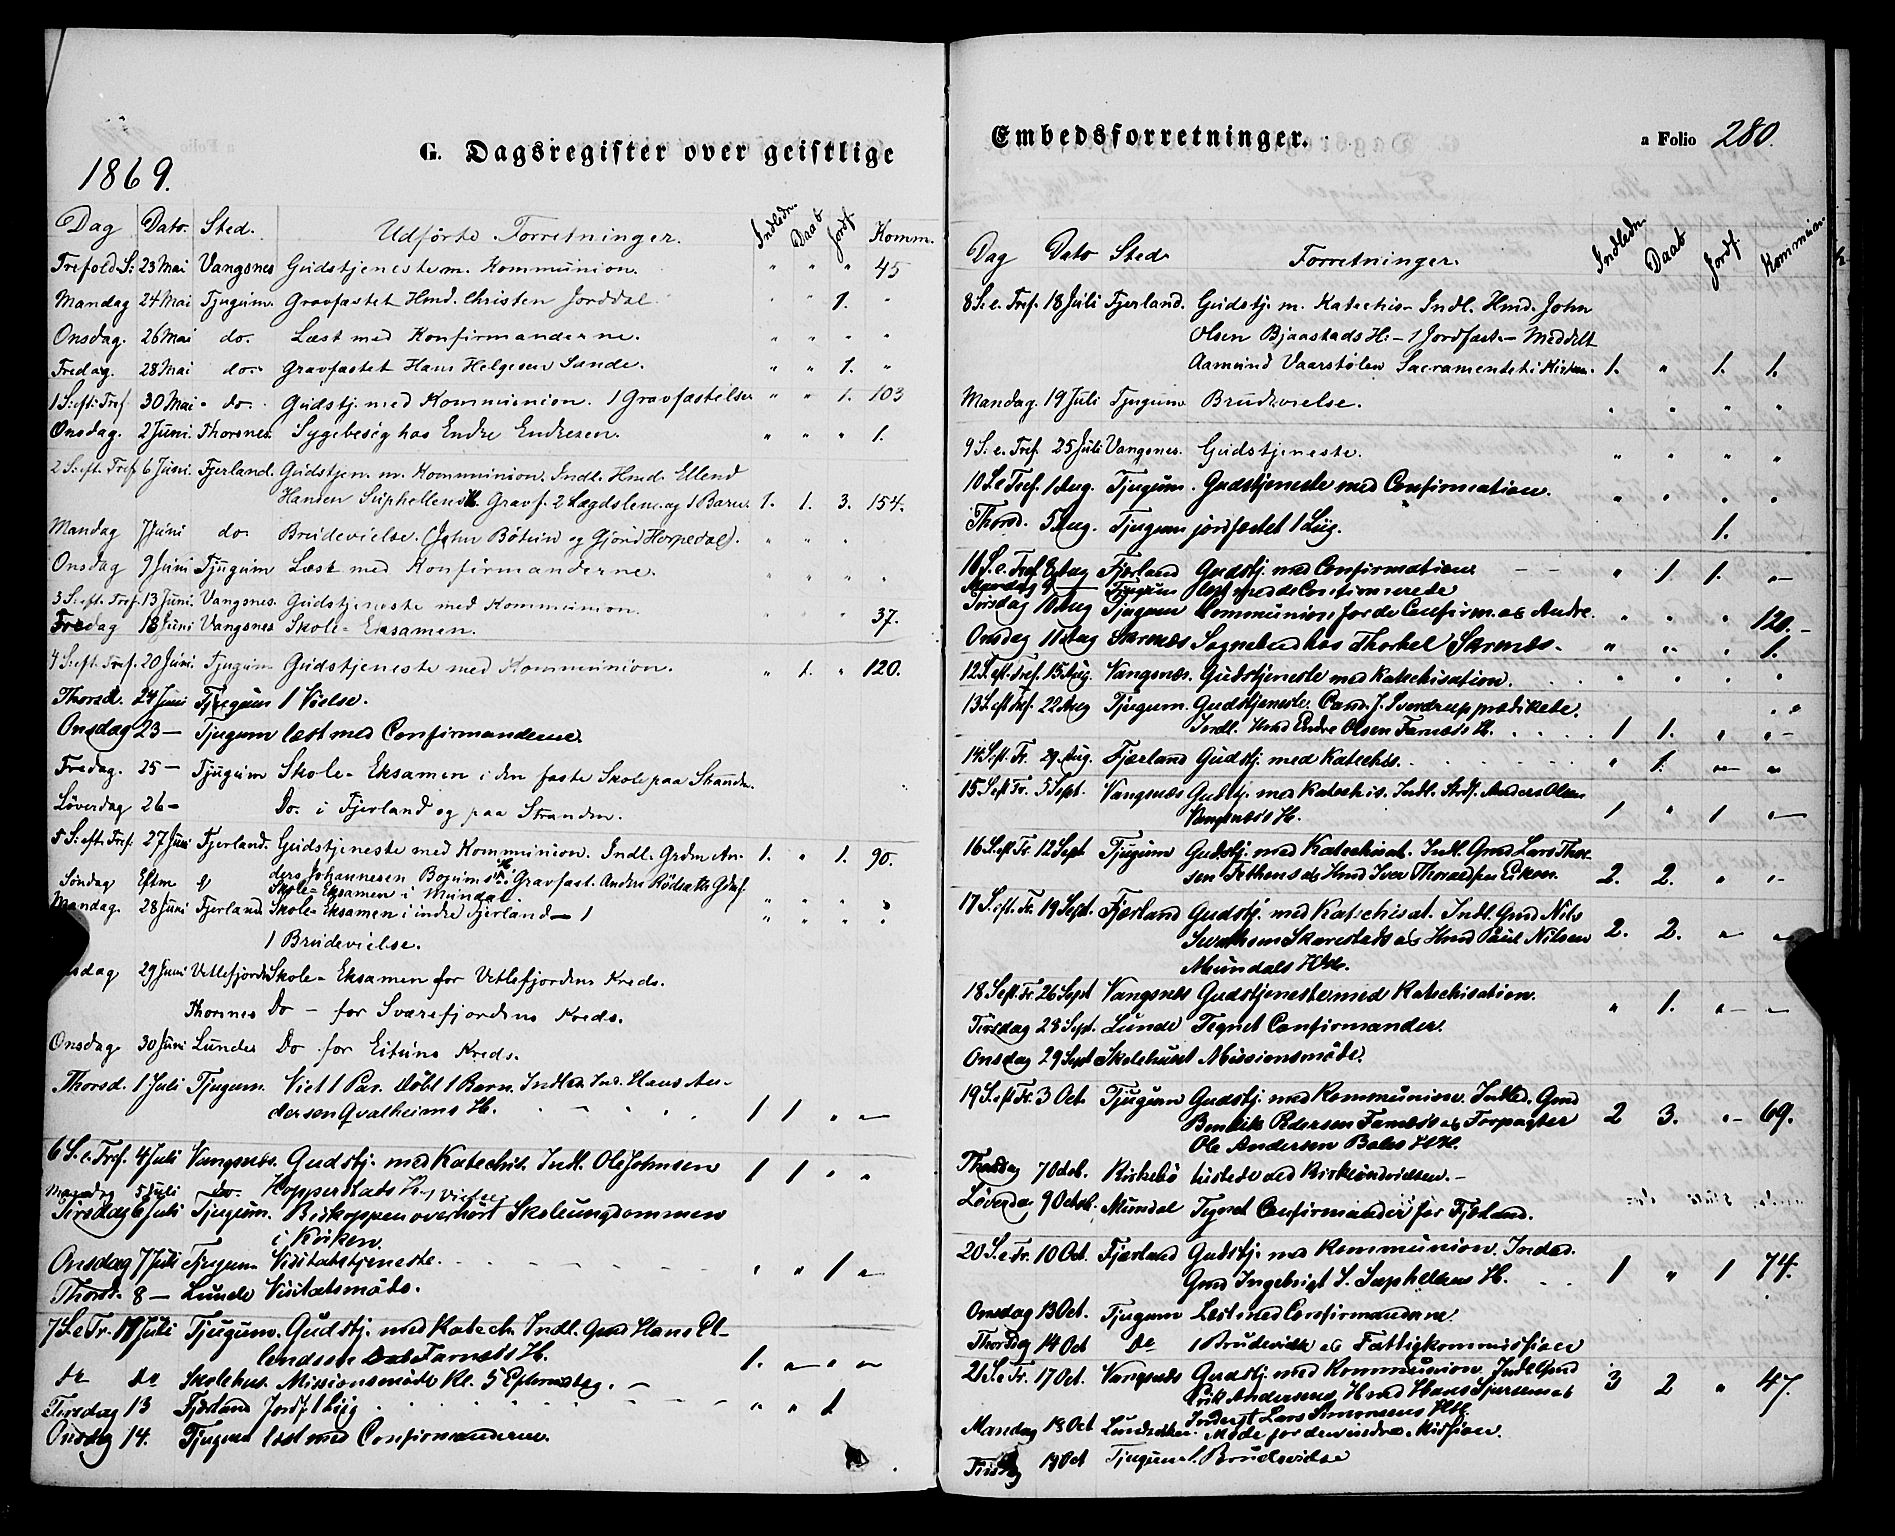 G. Dagsregister over geistlige
1869.
Dag Dato. Sted. Udførte Forretninger. Indledn. Daab Jordf. Komm.
Trefold.S: 23 Mai Vangsnes Gudstjeneste m. Kommunion. " " " 45
Mandag 24 Mai Tjugum. Gravfæstet Hmd. Christen Jorddal " " 1. "
Onsdag. 26 Mai do. Læst med Konfirmanderne. " " " "
Fredag. 28 Mai do. Gravfæstet Hans Helgesen Sunde. " " 1. "
1 S: eft: Tref. 30 Mai do. Gudstj. med Kommunion. 1 Gravfæstelse " " 1. 103
Onsdag. 2 Juni. Thorsnes. Sygebesøg hos Endre Endresen. " " " 1.
2 S: eft. Tref 6 Juni. Fjerland. Gudstjen. m. Kommunion. Indl. Hmd. Ellend
Hansen Gravf. 2 Lægdslem. og 1 Barn. 1. 1. 3. 154.
Mandag 7 Juni do. Brudevielse. (John Bøtun og Gjørid Horpedal). " " "
Onsdag 9 Juni Tjugum Læst med Konfirmanderne. " " " "
3 S: eft. Tref. 13 Juni. Vangsnes. Gudstjeneste med Kommunion. 37.
Fredag 18 Juni Vangsnes Skole-Eksamen.
4 S: eft. Tref. 20 Juni. Tjugum Gudstjeneste med Kommunion. " 1. " 120.
Thorsd. 24 Juni Tjugum 1 Vielse.
Onsdag 23 — Tjugum læst med Confirmanderne.
Fredag. 25 — Tjugum Skole-Eksamen i den faste Skole paa Stranden.
Løverdag 26 — Do. i Fjerland og paa Stranden.
5 S: eft. Tref. 27 Juni Fjerland. Gudstjeneste med Kommunion. Indl. Grdm. An- 1. " 1. 90.
ders Johannesen Gravfæst. Anders
Søndag Eftm Skole-Eksamen i Mundal. " " " "
Mandag. 28 Juni Fjerland Skole-Eksamen i indre Fjerland — 1 " " " "
1 Brudevielse.
sdag 29 Juni Vetlefjorden Skole-Eksamen for Vetlefjordens Kreds.
Thorsnes Do — for Sværefjordens Kreds.
Onsdag 30 Juni Lunde Do for Eituns Kreds.
Thorsd. 1 Juli Tjugum. Viet 1 Par. døbt 1 Barn. Indled. Ind. Hans An-
dersen Qvalheims H. 1 1 " "
6 S. e. Tref. 4 Juli Vangsnes. Gudstj. med Katechis. Indl. Ole Johnsen 1 1 " "
Hopperstads H.
Mandag 5 Juli do. 1 Vielse
Tirsdag 6 Juli Tjugum. Biskoppen overhørt Skoleungdommen
i Kirken.
Onsdag 7 Juli Tjugum Visitatstjeneste. " " 1 "
Thorsd. 8 — Lunde Visitatsmøde.
7 S. e Tr. 11 Juli Tjugum. Gudstj. med Katech. Indl. Gmd Hans El-
lendsen Farnes H. 1. " " "
do do Skolehus. Missionsmøde Kl. 5 Eftermidag. —
Tirsdag 13 Fjærland Jordf. 1 Liig " " 1
Onsdag 14. Tjugum læst med Confirmanderne.
Embedsforretninger.
a Folio 280.
Dag Dato Sted. Forretninger. Indledn. Daab Jordf. Kommun.
8 S. e. Tref. 18 Juli Fjerland. Gudstj. m. Katechis. Indl. Hmd. John
Olsen Bjaastads H. — 1 Jordfæst. — Meddelt
Aamund Vaarstølen Sacramentet i Kirken. 1. " 1. 1.
Mandag 19 Juli Tjugum Brudevielse. " " " "
9 S. e. Tref. 25 Juli Vangsnes. Gudstjeneste. " " " "
10 S. e Tref. 1 Aug. Tjugum. Gudstjeneste med Confirmation. " " " "
Thorsd. 5 Aug. Tjugum jordfæstet 1 Liig. 1.
11 S. e. Tref. 8 Aug Fjærland Gudstj. med Confirmation " 1. 1. "
Mandag 9 — Tjugum
Tirsdag 10 Aug Tjugum Communion for de Confirm. og Andre. " " " 120.
Onsdag 11 Aug Skrenæs Sognebud hos Thorkel Skrenæs. " " " 1.
12 S. eft. Tref. 15 Aug. Vangsnæs. Gudstjeneste med Katechisation. " " " "
13 S. eft Tref. 22 Aug Tjugum. Gudstjeneste. Cand. J. Sverdrup prædikede.
Indl. Hmd Endre Olsen Farnæs H. 1 1. " "
14 S. eft. Tr. 29 Aug. Fjærland Gudstj. med Katechis. " 1. " "
15 S. eft Tr. 5 Sept. Vangsnæs Gudstj. med Katechis. Indl. Anders Olsen
Vangsnæs H. 1 " 1 "
16 S. eft. Tr. 12 Sept Tjugum Gudstj. med Katechisat. Indl. Gmd Lars Thor-
sen og Hmd Iver 2. 2. " "
17 S. eft. Tr. 19 Sept. Fjærland Gudstj. med Katechisat. Indl. Gmd Nils
Skarestads og Hmd Paul Nilsen 2. 2. " "
Mundals HH.
18 S. eft. Tr. 26 Sept Vangsnes Gudstjeneste med Katechisation. " 1. " "
Tirsdag 28 Sept. Lunde Tegnet Confirmander.
Onsdag 29 Sept Skolehuset Missionsmøde.
19 S. eft Tr. 3 Oct. Tjugum Gudstj. med Kommunion. Indled. Gmd
Bendik Pedersen Farnæs og Forpagter
Ole Andersen HH. 2 3. " 69.
Thorsdag 7 Octob. Kirkebø tilstede ved
Løverdag 9 Octob. Mundal Tegnet Confirmander for Fjærland.
20 S. e Tr. 10 Oct. Fjærland Gudstj. med Kommunion. Indled.
Gmd Ingebrigt S. H. 1 " 1 74.
Onsdag 13 Oct. Tjugum Læst med Confirmanderne
Thorsdag 14 Oct do 1 Brudevielse og Fattigkommission
21 S. e Tr. 17 Oct. Vangsnæs Gudstj. med Kommunion. Indl. Gmd
Erik Andersens, Hmd Hans og 3 2 " 47.
Inderst Lars Simonsens HH.
Mandag 18 Oct Møde for den indre Mission.
Tirsdag 19 Oct Tjugum 1 Brudevielse